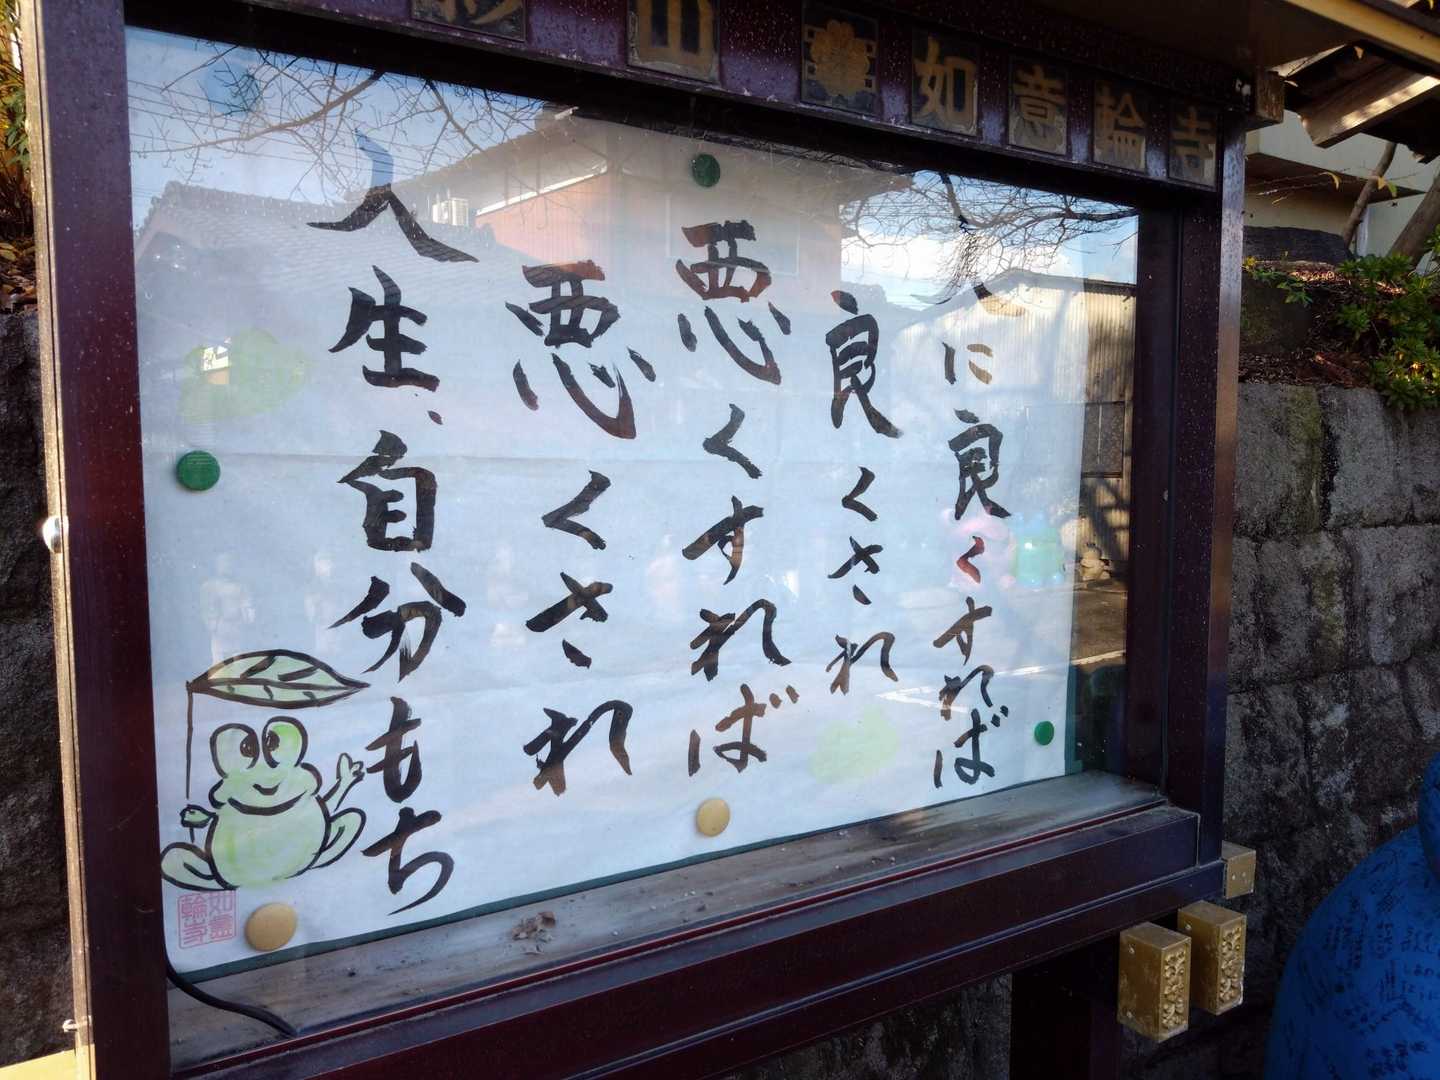 山 如意輪寺
人に良くすれば
良くされ
悪くすれば
悪くされ
人生、自分もち
如意輪寺